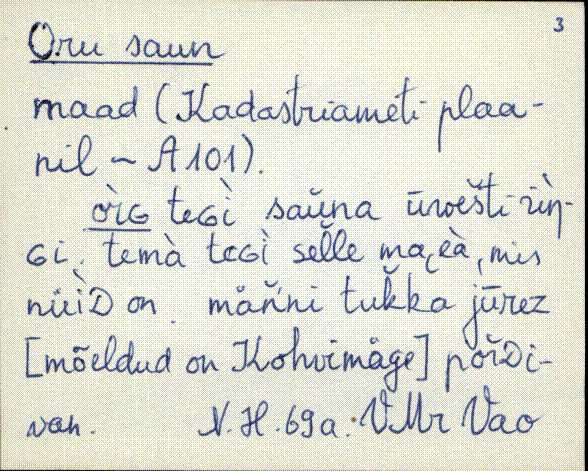 3
Oru saun
maad (Kadastriameti plaa-
nil ~ A 101).
òrG teGì saŭna ūwešti-
Gi. temà teGì sel̆le mis
nüìD on mäňni tuk̆ka jūrez
[mõeldud on Kohvimäge]
wan. N. H. 69 a. VMr Vao